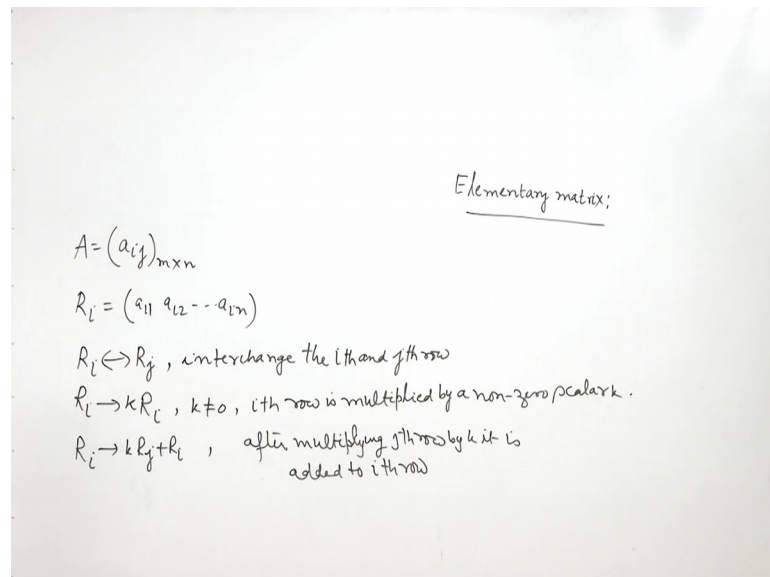 Elementary matrix:
A = (aij)m×n
Ri = (a11 ai2 --- ain)
Ri ↔ Rj , interchange the ith and jth row
Ri → kRi , k≠0 , ith row is multiplied by a non-zero scalar k.
Ri → kRj+Ri , after multiplying jth row by k it is
added to ith row